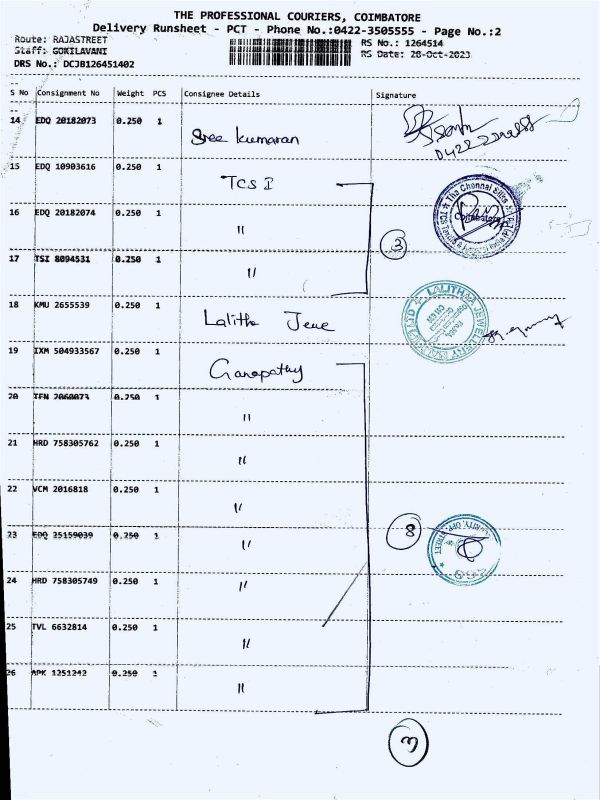 THE PROFESSIONAL COURIERS, COIMBATORE
Delivery Runsheet - PCT - Phone No.:0422-3505555 - Page No.:2
Route: RAJASTREET
RS No.: 1264514
Staff: GOKILAVANI
RS Date: 28-Oct-2023
DRS No.: DCJB126451402
S No Consignment No Weight PCS Consignee Details Signature
14 EDQ 20182073 0.250 1 Sree Kumaran
15 EDQ 10903616 0.250 1 TCS I
16 EDQ 20182074 0.250 1 "
3
17 TSI 8094531 0.250 1 "
The Chennai Silks
Coimbatore
18 KMU 2655539 0.250 1 Lalitha Jewe
LALITHAA JEWELLERY
19 IXM 504933567 0.250 1 Ganapathy
20 TEN 2060073 0.250 1 "
21 HRD 758305762 0.250 1 "
22 VCM 2016818 0.250 1 "
23 EDQ 25159039 0.250 1 "
8
24 HRD 758305749 0.250 1 "
25 TVL 6632814 0.250 1 "
26 APK 1251242 0.250 1 "